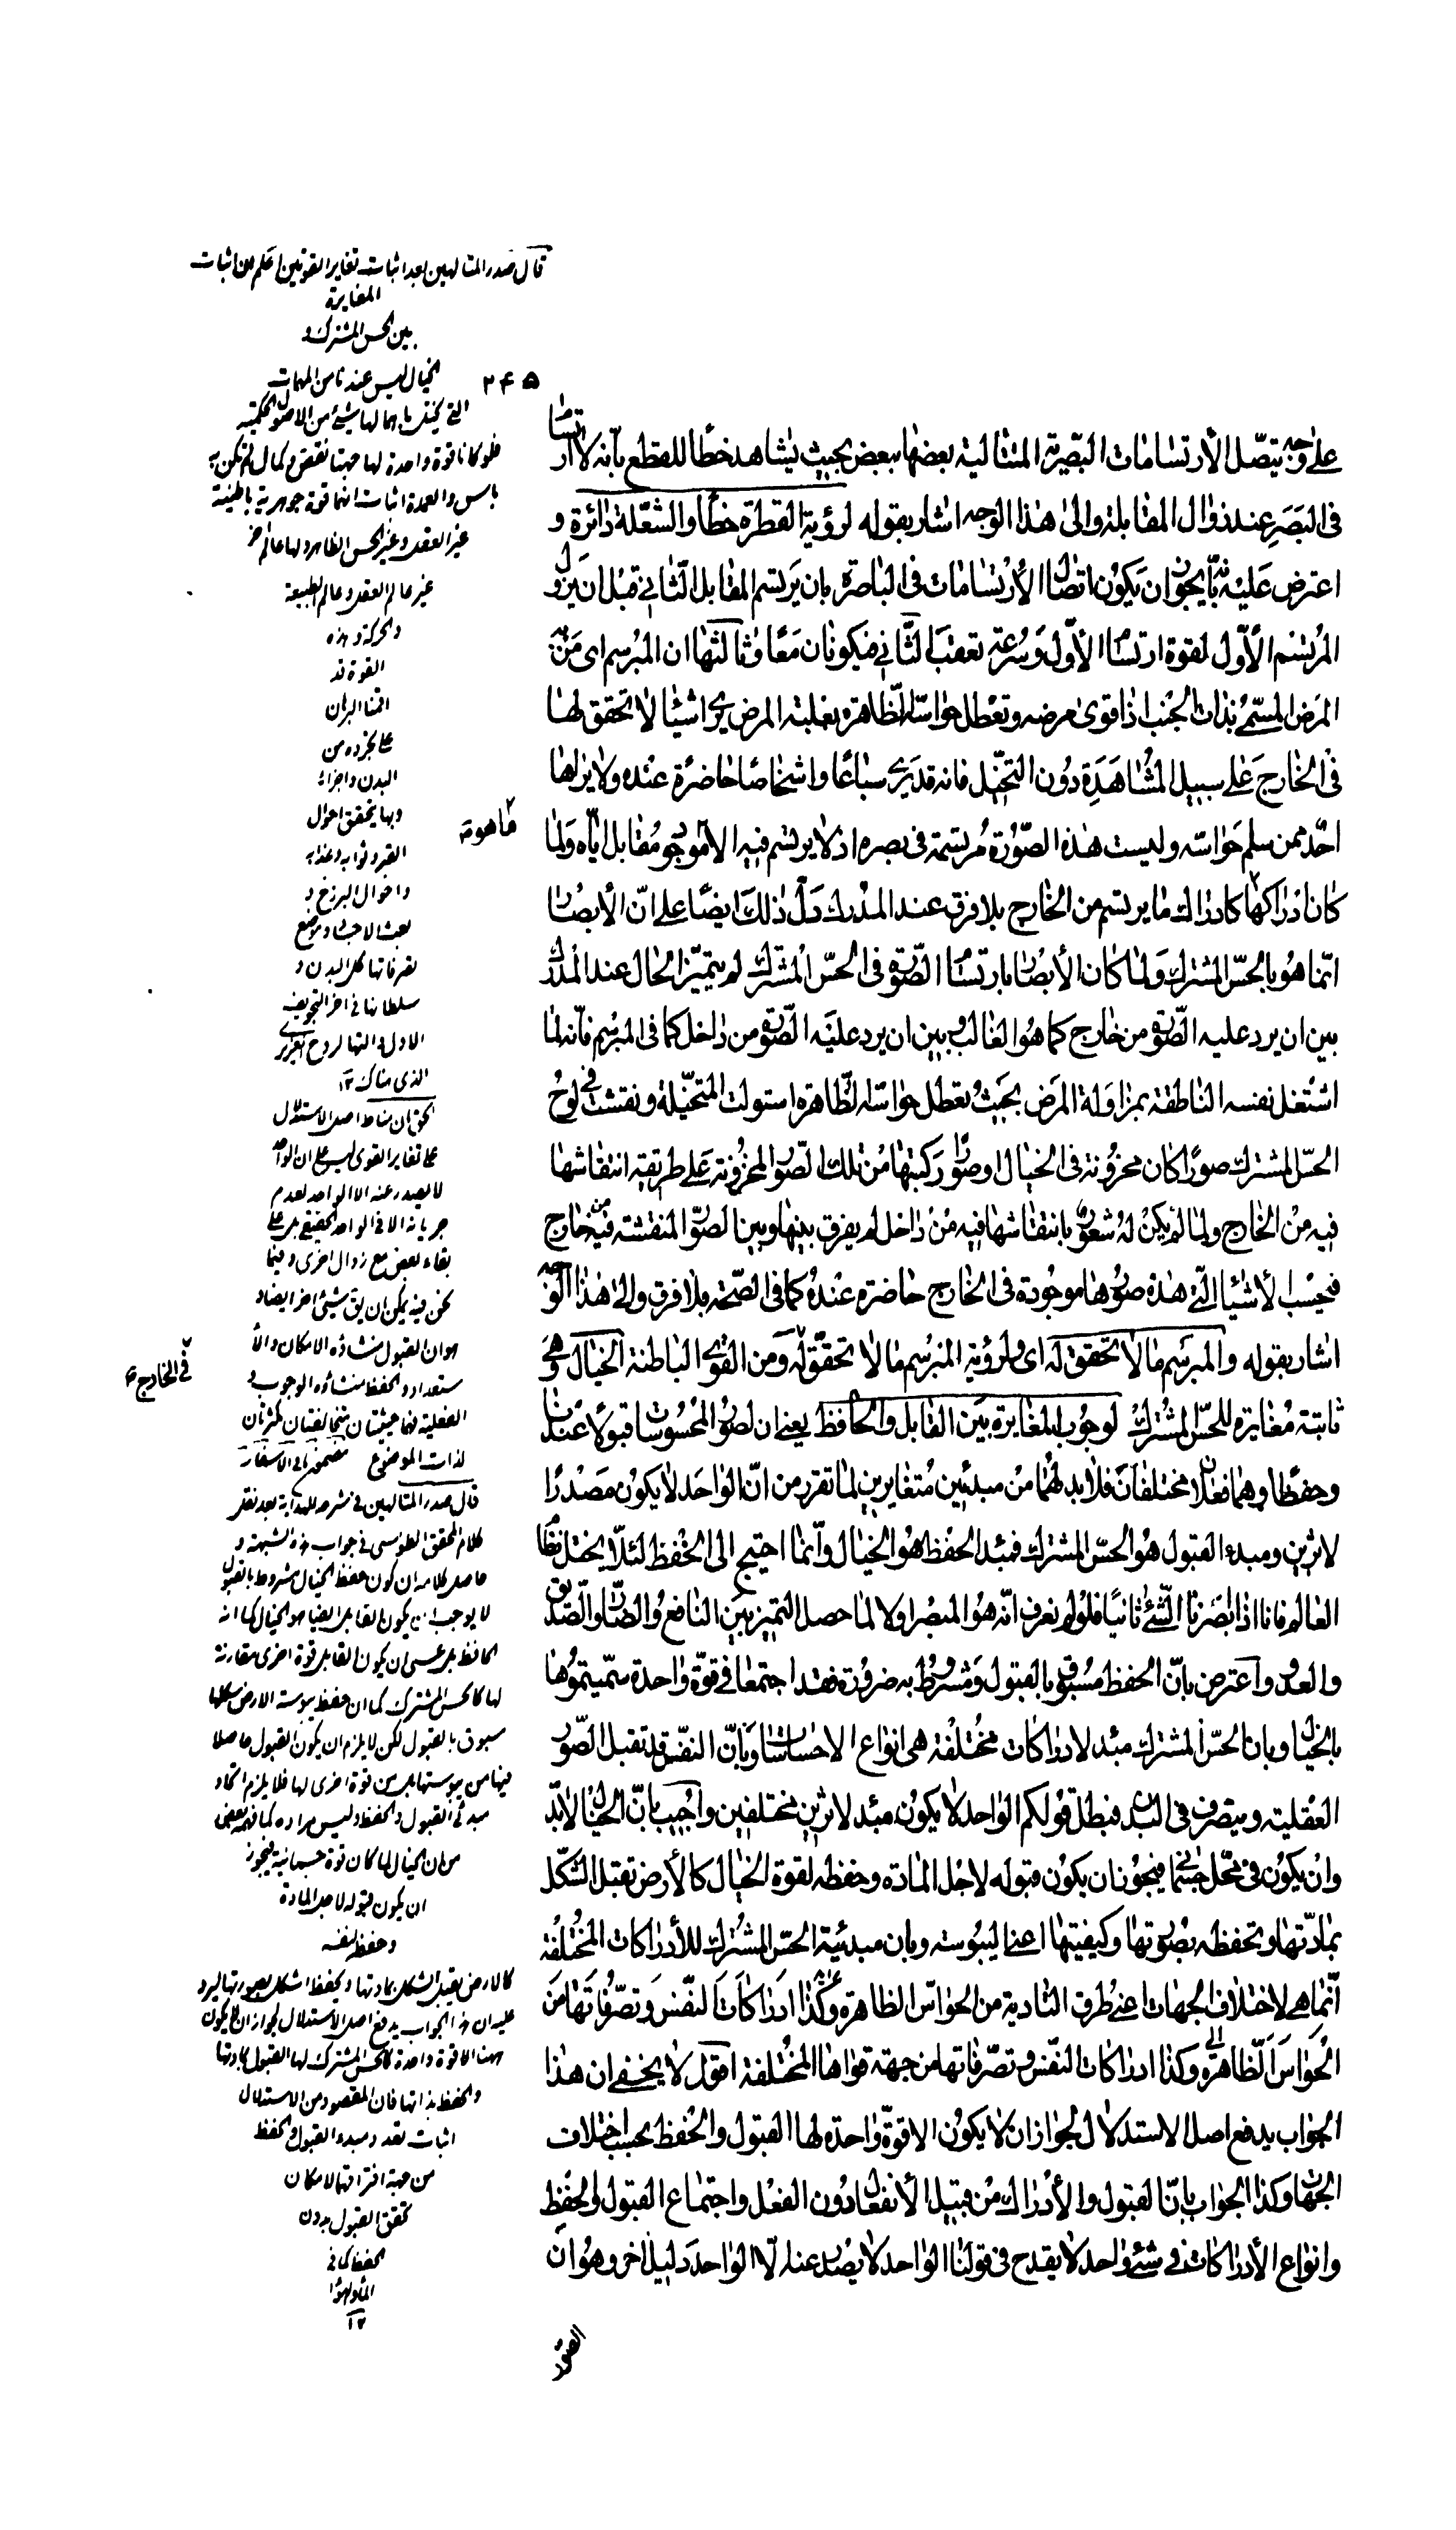 ۲۴۵
على وجه يتصل الأرتسامات البصرية المتتالية بعضها ببعض بحيث يشاهد خطا للقطع بأنه لا ارتسام
فى البصر عند زوال المقابلة والى هذا الوجه اشار بقوله لرؤية القطرة خطا والشعلة دائرة و
اعترض عليه بأنه يجوز ان يكون اتصال الأرتسامات فى الباصرة بان يرتسم المقابل الثانى قبل ان يزول
المرتسم الأول لقوة ارتسام الأول وسرعة تعقب الثانى فيكونان معا وثالثها ان المبرسم اى من به
المرض المسمى بذات الجنب اذا قوى مرضه وتعطل حواسه الظاهرة بغلبة المرض يرى اشياء لا تحقق لها
فى الخارج على سبيل المشاهدة دون التخيل فانه قد يرى سباعا واشخاصا حاضرة عنده ولا يراها
احد ممن سلم حواسه وليست هذه الصورة مرتسمة فى بصره اذ لا يرتسم فيه الا ما هو موجود مقابل اياه ولما
كان ادراكها كادراك ما يرتسم من الخارج بلا فرق عند المدرك دل ذلك ايضا على ان الأبصار
انما هو بالحس المشترك ولما كان الأبصار بارتسام الصورة فى الحس المشترك لم يتميز الحال عند المدرك
بين ان يرد عليه الصورة من خارج كما هو الغالب وبين ان يرد عليه الصورة من داخل كما فى المبرسم فانه لما
اشتغل نفسه الناطقة بمزاولة المرض بحيث تعطل حواسه الظاهرة استولت المتخيلة ونقشت فى لوح
الحس المشترك صورا كان مخزونة فى الخيال او صورا ركبتها من تلك الصور المخزونة على طريقة انتقاشها
فيه من الخارج ولما لم يكن له شعور بانتقاشها فيه من داخل لم يفرق بينها وبين الصور المنتقشة فيه من خارج
فيحسب الأشياء التى هذه صورها موجودة فى الخارج حاضرة عنده كما فى الصحة بلا فرق والى هذا الوجه
اشار بقوله والمبرسم ما لا تحقق له اى ولرؤية المبرسم ما لا تحقق له فى الخارج ومن القوى الباطنة الخيال وهى
ثابتة مغايرة للحس المشترك لوجوب المغايرة بين القابل والحافظ يعنى ان لصور المحسوسات قبولا عندنا
وحفظا وهما فعلان مختلفان فلا بد لهما من مبدئين متغايرين لما تقرر من ان الواحد لا يكون مصدرا
لاثرين ومبدء القبول هو الحس المشترك فمبدء الحفظ هو الخيال وانما احتيج الى الحفظ لئلا يختل نظام
العالم فانا اذا ابصرنا الشئ ثانيا فلو لم نعرف انه هو المبصر اولا لما حصل التميز بين النافع والضار والصديق
والعدو واعترض بان الحفظ مسبوق بالقبول ومشروط به ضرورة فقد اجتمعا فى قوة واحدة سميتموها
بالخيال وبان الحس المشترك مبدء لادراكات مختلفة هى انواع الاحساسات وبان النفس قد تقبل الصور
العقلية ويتصرف فى البدن فبطل قولكم الواحد لا يكون مبدء لاثرين مختلفين واجيب بان الخيال لابد
وان يكون فى محل جسمانى فيجوز ان يكون قبوله لاجل المادة وحفظه لقوة الخيال كالأرض تقبل الشكل
بمادتها وتحفظه بصورتها وكيفيتها اعنى اليبوسة وبان مبدئية الحس المشترك للأدراكات المختلفة
انما هى لاختلاف الجهات اعنى طرق التادية من الحواس الظاهرة وكذا ادراكات النفس وتصرفاتها من
الحواس الظاهرة وكذا ادراكات النفس وتصرفاتها من جهة قواها المختلفة اقول لا يخفى ان هذا
الجواب يدفع اصل الاستدلال لجواز ان لا يكون الا قوة واحدة لها القبول والحفظ بحسب اختلاف
الجهات وكذا الجواب بان القبول والأدراك من قبيل الأنفعال دون الفعل واجتماع القبول والحفظ
وانواع الأدراكات فى شئ واحد لا يقدح فى قولنا الواحد لا يصدر عنه الا الواحد دليل اخر وهو ان
الصور
قال صدر المتالهين بعد اثبات تغاير القوتين اعلم ان اثبات
المغايرة
بين الحس المشترك و
الخيال ليس عندنا من المهمات
التى يختل باهمالها شئ من الاصول الحكمية
فلو كانا قوة واحدة لها جهتا نقص وكمال لم يكن به
باس والعمدة اثبات انها قوة جوهرية باطنية
غير العقل وغير الحس الظاهر ولها عالم اخر
غير عالم العقل وعالم الطبيعة
والحركة وهذه
القوة قد
اقمنا البرهان
على تجرده من
البدن واجزائه
وبها يتحقق احوال
القبر وثوابه وعذابه
واحوال البرزخ و
بعث الاجساد وموضع
تصرفاتها كل البدن و
سلطانها فى اخر التجويف
الاول والتها الروح الغريزى
الذى هناك ۱۲
الحق ان مناط اصل الاستدلال
على تغاير القوى ليس على ان الواحد
لا يصدر عنه الا الواحد لعدم
جريانه الا فى الواحد الحقيقى بل على
بقاء بعض مع زوال اخرى وفيما
نحن فيه يمكن ان يق شئ اخر ايضا و
هو ان القبول منشاؤه الامكان والا
ستعداد والحفظ منشاؤه الوجوب و
الفعلية فهما حيثيتان متخالفتان مكثرتان
لذات الموضوع مضمون ما فى الاسفار
قال صدر المتالهين فى شرحه للهداية بعد نقل
كلام المحقق الطوسى فى جواب هذه الشبهة و
حاصل كلامه ان كون حفظ الخيال مشروطا بالقبول
لا يوجب ان يكون القابل ايضا هو الخيال كما انه
الحافظ بل عسى ان يكون القابل قوة اخرى مقارنة
لها كالحس المشترك كما ان حفظ يبوسة الارض شكلها
مسبوق بالقبول لكن لا يلزم ان يكون القبول حاصلا
فيها من يبوستها بل من قوة اخرى لها فلا يلزم اتحاد
مبدئى القبول والحفظ وليس مراده كما فهمه بعض
من ان الخيال لما كان قوة جسمانية فيجوز
ان يكون قبوله لاجل المادة
وحفظه لنفسه
كالارض يقبل الشكل بمادتها ويحفظ الشكل بصورتها ليرد
عليه ان هذا الجواب يدفع اصل الاستدلال لجواز ان لا يكون
ههنا الا قوة واحدة كالحس المشترك لها القبول بمادتها
والحفظ بذاتها فان المقصود من الاستدلال
اثبات تعدد مبدء القبول والحفظ
من جهة افتراقهما لامكان
تحقق القبول بدون
الحفظ كما فى
الماء والهواء
۱۲